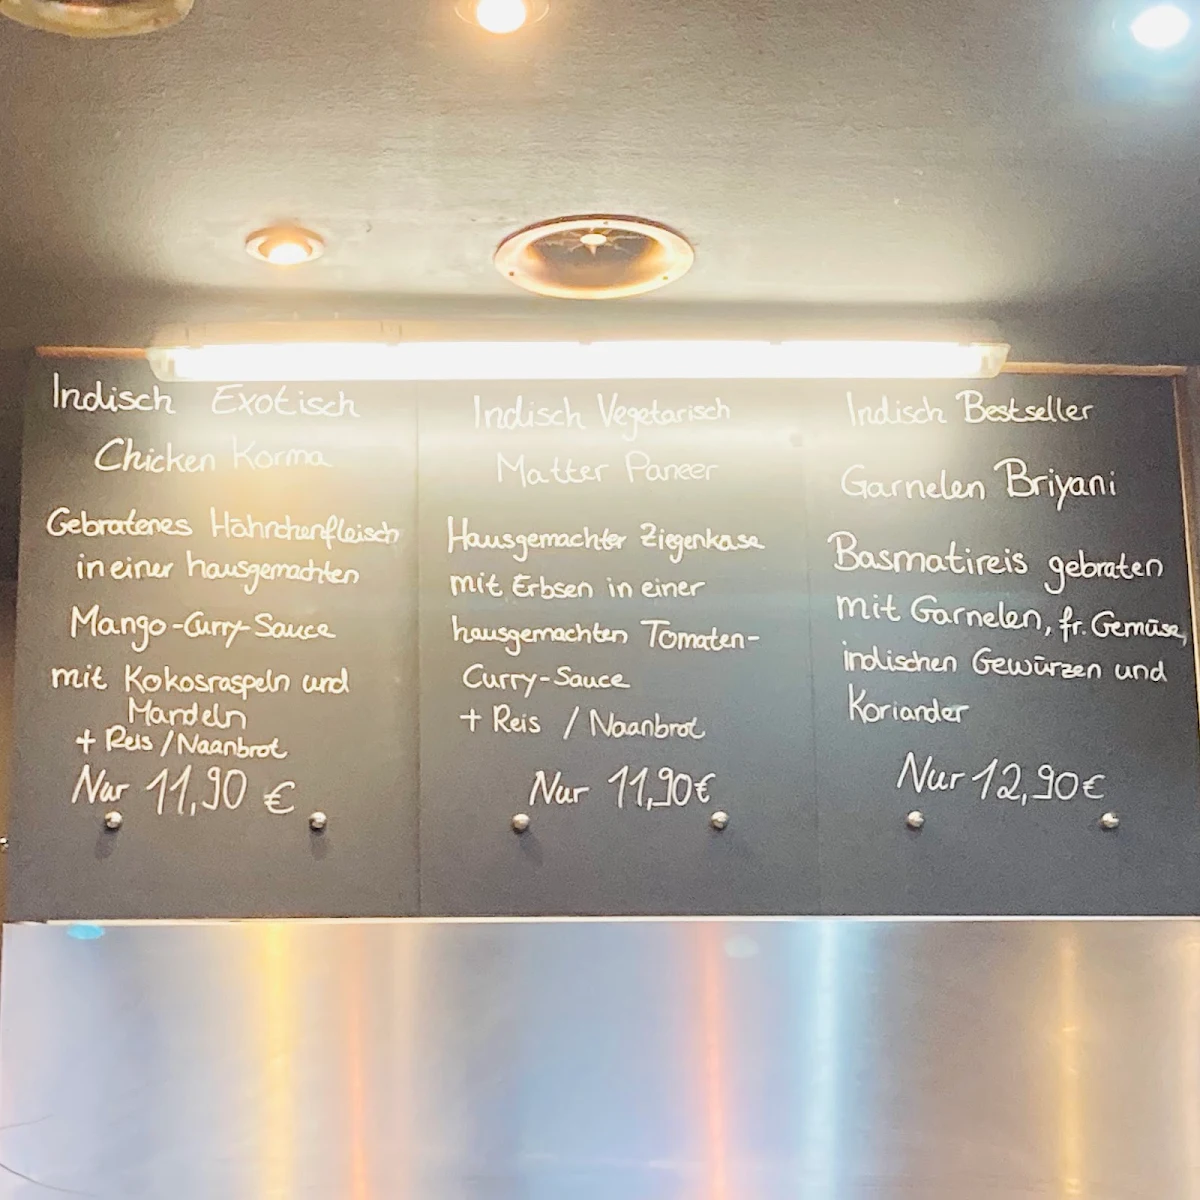 Indisch Exotisch
Chicken Korma
Gebratenes Hähnchenfleisch
in einer hausgemachten
Mango-Curry-Sauce
mit Kokosraspeln und
Mandeln
+ Reis / Naanbrot
Nur 11,90 €
Indisch Vegetarisch
Matter Paneer
Hausgemachter Ziegenkäse
mit Erbsen in einer
hausgemachten Tomaten-
Curry-Sauce
+ Reis / Naanbrot
Nur 11,90€
Indisch Bestseller
Garnelen Briyani
Basmatireis gebraten
mit Garnelen, fr. Gemüse,
indischen Gewürzen und
Koriander
Nur 12,90€